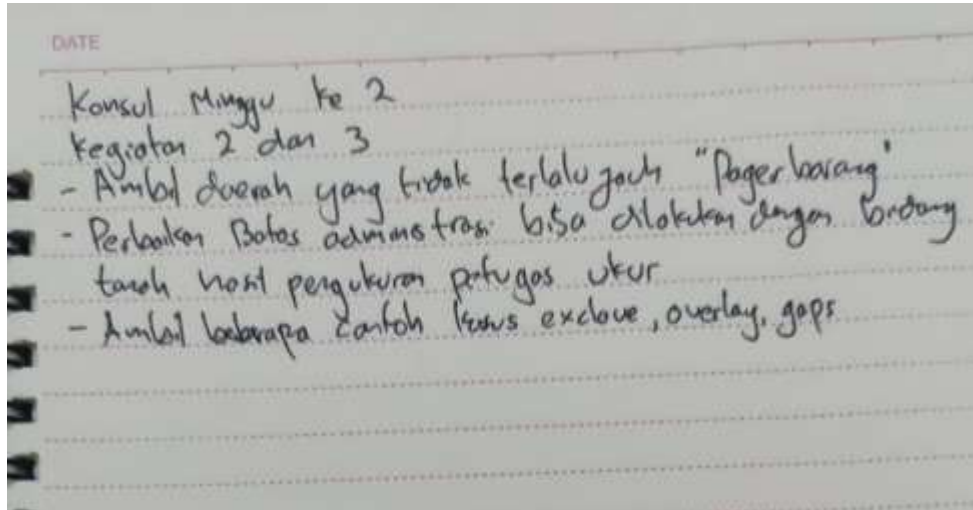 DATE
Konsul Minggu ke 2
Kegiatan 2 dan 3
- Ambil daerah yang tidak terlalu jauh "Pagerbarang"
- Perbaikan Batas administrasi bisa dilakukan dengan bidang
tanah hasil pengukuran petugas ukur
- Ambil beberapa contoh kasus exclave, overlay, gaps